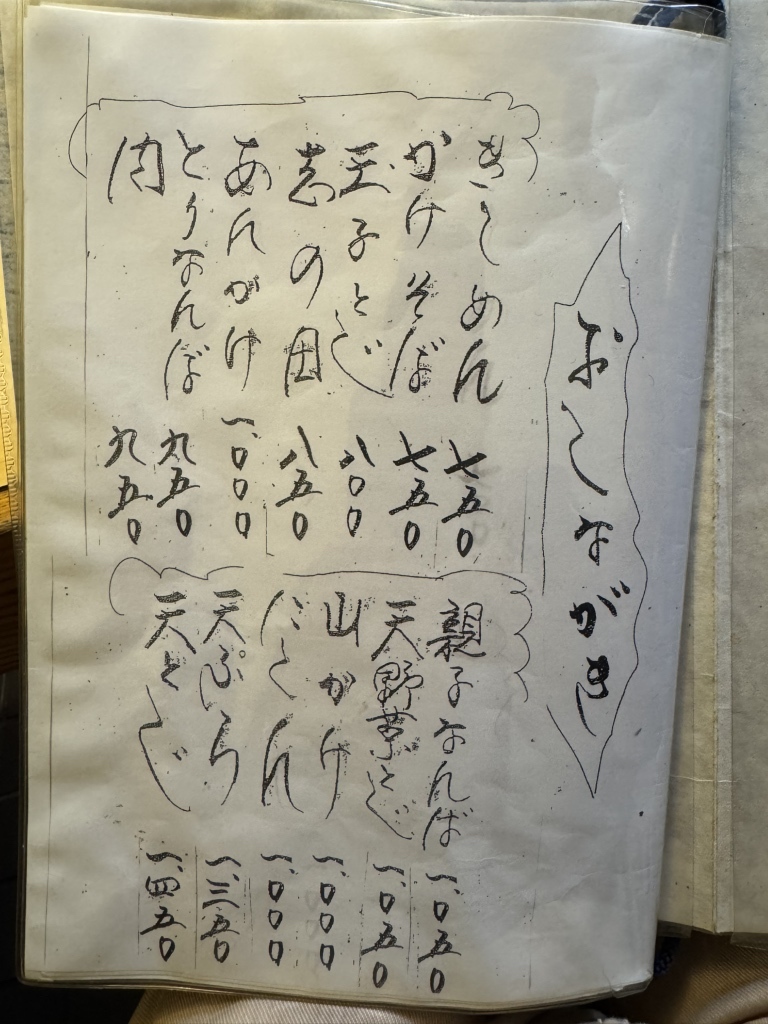 おしながき
きしめん 七五〇
かけそば 七五〇
玉子とじ 八〇〇
志の田 八五〇
あんかけ 一、〇〇〇
とりなんば 九五〇
肉 九五〇
親子なんば 一、〇五〇
天野菜とじ 一、〇五〇
山かけ 一、〇〇〇
にしん 一、〇〇〇
天ぷら 一、三五〇
天とじ 一、四五〇